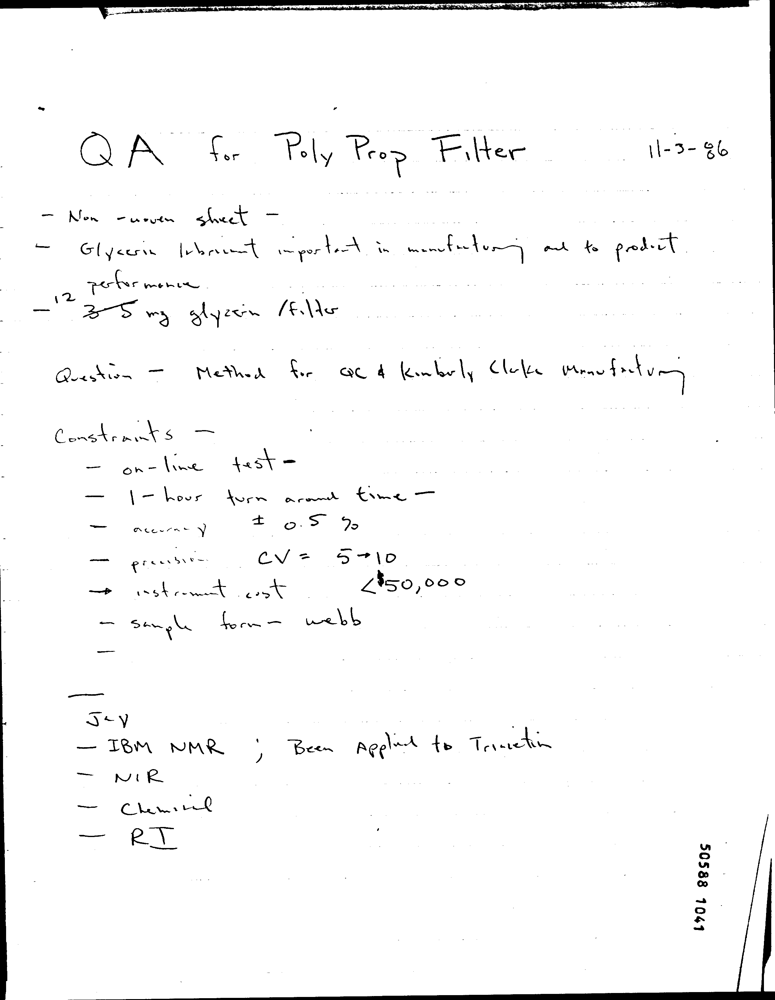 QA for Poly Prop Filter 11-3-86
- Non-woven sheet -
- Glycerin lubricant important in manufacturing and to product
performance
- 12 3-5 mg glycerin / filter
Question - Method for QC & Kimberly Clarke Manufacturing
Constraints -
- on-line test -
- 1-hour turn around time -
- accuracy ± 0.5 %
- precision CV = 5→10
→ instrument cost <$50,000
- sample form - webb
-
- IBM NMR ; Been Applied to Triacetin
- NIR
- Chemical
- RI
50588 1041